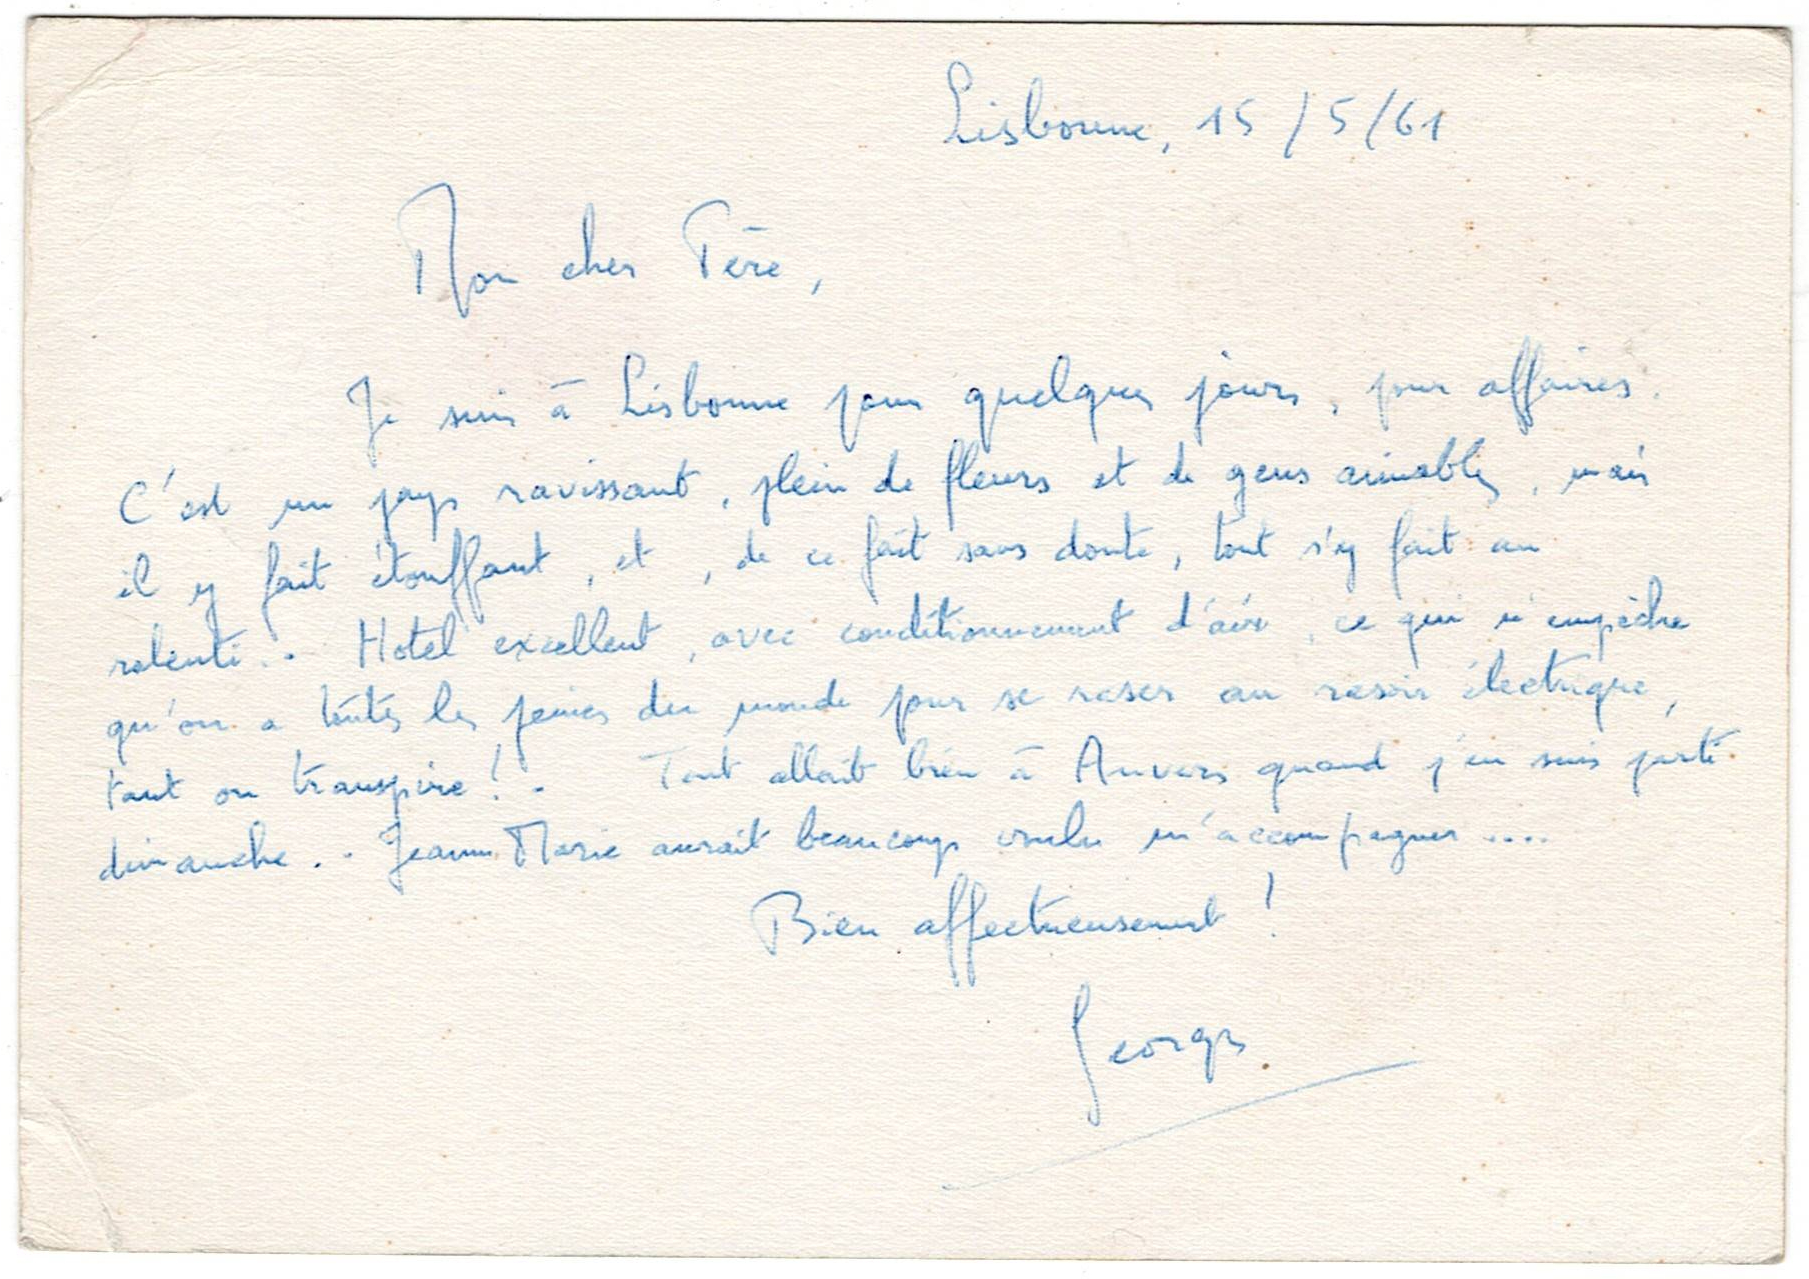 Lisbonne, 15/5/61
Mon cher Père,
Je suis à Lisbonne pour quelques jours, pour affaires.
C'est un pays ravissant, plein de fleurs et de gens aimables, mais
il y fait étouffant, et, de ce fait sans doute, tout s'y fait au
ralenti.. Hotel excellent, avec conditionnement d'air, ce qui n'empêche
qu'on a toutes les peines du monde pour se raser au rasoir électrique,
tant on transpire!. Tout allait bien à Anvers quand j'en suis parti
dimanche.. Jeanne Marie aurait beaucoup voulu m'accompagner ....
Bien affectueusement!
Georges